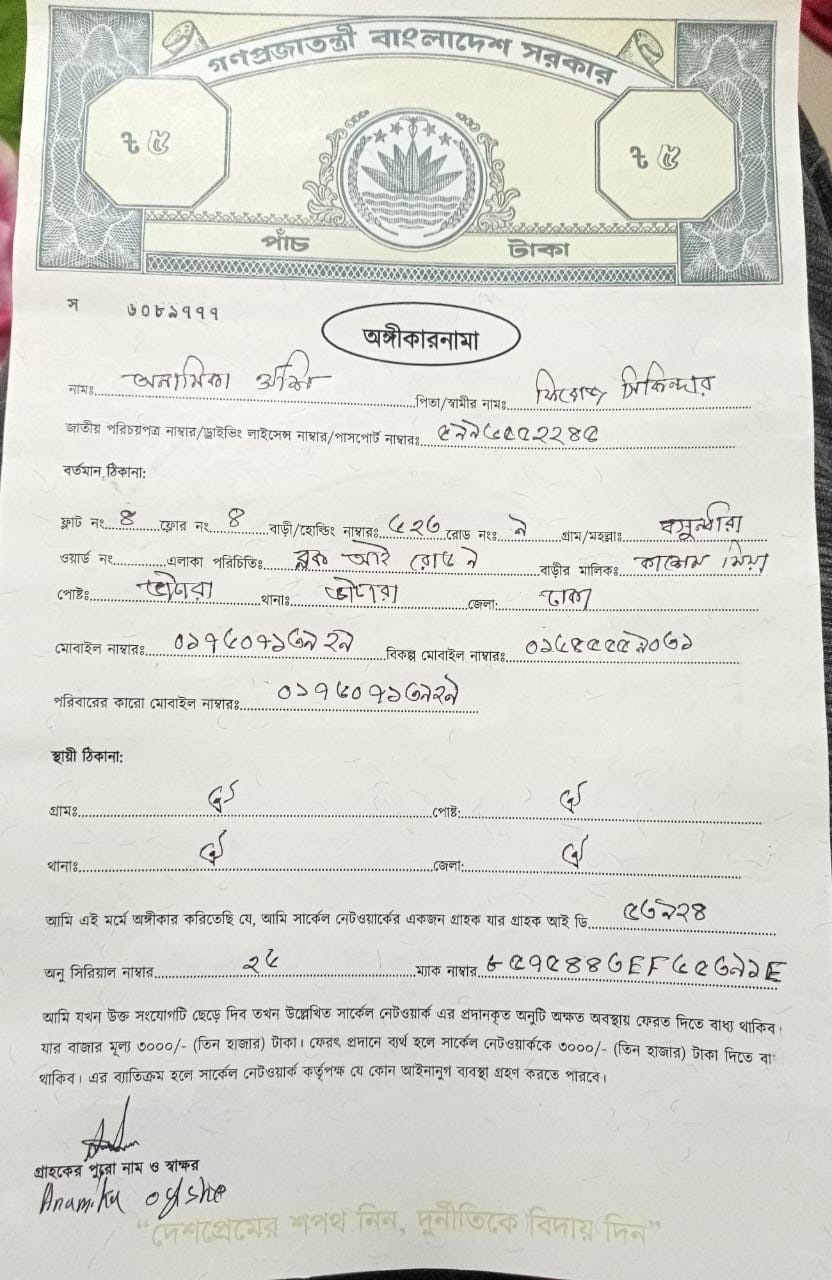 গণপ্রজাতন্ত্রী বাংলাদেশ সরকার
৳ ৫ ৳ ৫
পাঁচ টাকা
স ৬০৮৯৭৭৭
অঙ্গীকারনামা
নামঃ অনামিকা ঐশি পিতা/স্বামীর নামঃ ফিরোজ সিকিন্দার
জাতীয় পরিচয়পত্র নাম্বার/ড্রাইভিং লাইসেন্স নাম্বার/পাসপোর্ট নাম্বারঃ
বর্তমান ঠিকানা:
ফ্লাট নং ৪ ফ্লোর নং ৪ বাড়ী/হোল্ডিং নাম্বারঃ ৫২৬ রোড নংঃ ৯ গ্রাম/মহল্লাঃ বসুন্ধরা
ওয়ার্ড নং এলাকা পরিচিতিঃ ব্লক আই রোড ৯ বাড়ীর মালিকঃ কাশেম মিয়া
পোষ্টঃ ভাটারা থানাঃ ভাটারা জেলা: ঢাকা
মোবাইল নাম্বারঃ ০১৭৫০৭১৬৯২৯ বিকল্প মোবাইল নাম্বারঃ
পরিবারের কারো মোবাইল নাম্বারঃ ০১৭৫০৭১৬৯২৯
স্থায়ী ঠিকানা:
গ্রামঃ ঐ পোষ্ট: ঐ
থানাঃ ঐ জেলা: ঐ
আমি এই মর্মে অঙ্গীকার করিতেছি যে, আমি সার্কেল নেটওয়ার্কের একজন গ্রাহক যার গ্রাহক আই ডি
অনু সিরিয়াল নাম্বার ২৫ ম্যাক নাম্বার
আমি যখন উক্ত সংযোগটি ছেড়ে দিব তখন উল্লেখিত সার্কেল নেটওয়ার্ক এর প্রদানকৃত অনুটি অক্ষত অবস্থায় ফেরত দিতে বাধ্য থাকিব।
যার বাজার মূল্য ৩০০০/- (তিন হাজার) টাকা। ফেরৎ প্রদানে ব্যর্থ হলে সার্কেল নেটওয়ার্ককে ৩০০০/- (তিন হাজার) টাকা দিতে বা
থাকিব। এর ব্যাতিক্রম হলে সার্কেল নেটওয়ার্ক কর্তৃপক্ষ যে কোন আইনানুগ ব্যবস্থা গ্রহণ করতে পারবে।
গ্রাহকের পুরো নাম ও স্বাক্ষর
Anamika
"দেশপ্রেমের শপথ নিন, দুর্নীতিকে বিদায় দিন"